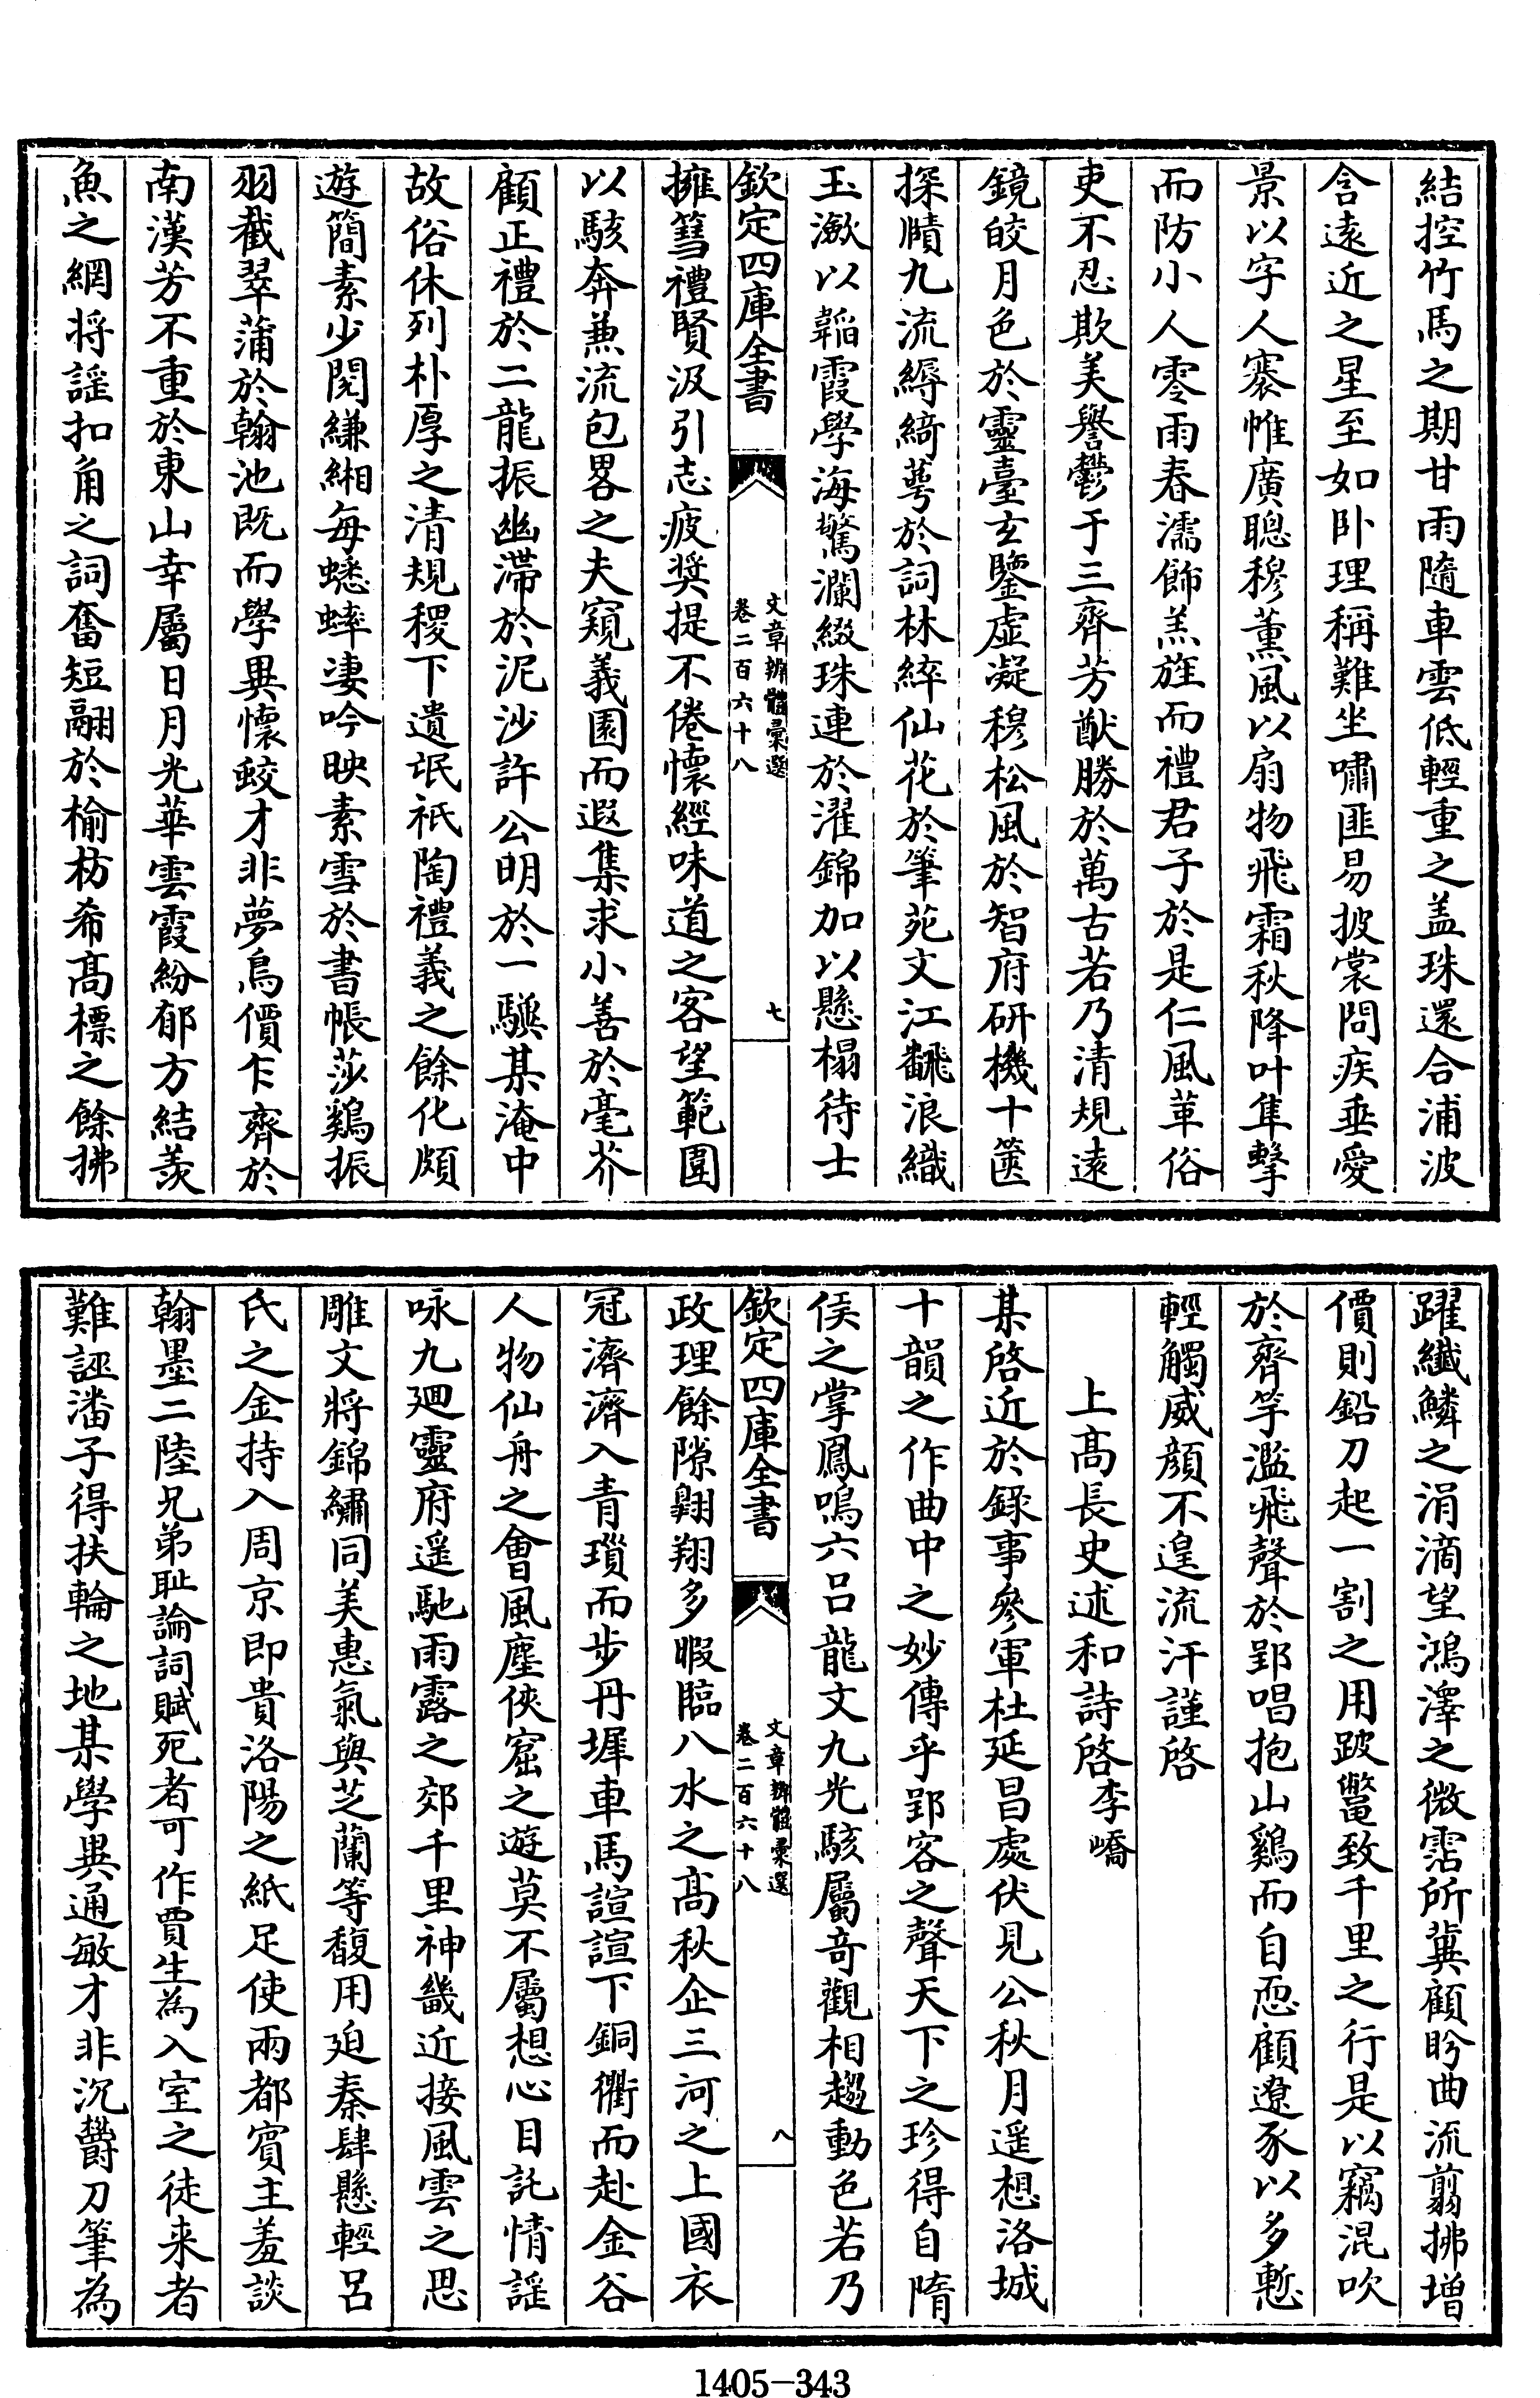 結控竹馬之期甘雨隨車雲低輕重之盖珠還合浦波
含遠近之星至如卧理稱難坐嘯匪易披裳問疾垂愛
景以字人褰帷廣聰穆薫風以扇物飛霜秋降叶隼擊
而防小人零雨春濡飾羔旌而禮君子於是仁風革俗
吏不忍欺美譽鬱于三齊芳猷勝於萬古若乃清規遠
鏡皎月色於靈臺玄鑒虚凝穆松風於智府研機十篋
探賾九流縟綺萼於詞林綷仙花於筆苑文江飜浪織
玉漵以韜霞學海驚瀾綴珠連於濯錦加以懸榻待士
欽定四庫全書
文章辨體彚選
卷二百六十八
七
擁篲禮賢汲引志疲奨提不倦懷經味道之客望範圍
以駭奔兼流包畧之夫窺義園而遐集求小善於毫芥
顧正禮於二龍振幽滯於泥沙許公明於一驥某淹中
故俗休列朴厚之清規稷下遺氓祇陶禮義之餘化頗
遊簡素少閲縑緗每蟋蟀凄吟映素雪於書帳莎鷄振
羽截翠蒲於翰池既而學異懷蛟才非夢鳥價乍齊於
南漢芳不重於東山幸屬日月光華雲霞紛郁方結羨
魚之網將謡扣角之詞奮短翮於榆枋希髙標之餘拂
躍纎鱗之涓滴望鴻澤之微霑所冀顧盻曲流翦拂增
價則鉛刀起一割之用跛鼈致千里之行是以竊混吹
於齊竽濫飛聲於郢唱抱山鷄而自恧顧遼豕以多慙
輕觸威顔不遑流汗謹啓
上髙長史述和詩啓李嶠
某啓近於錄事參軍杜延昌處伏見公秋月遥想洛城
十韻之作曲中之妙傳乎郢客之聲天下之珍得自隋
侯之掌鳳鳴六吕龍文九光駭屬竒觀相趨動色若乃
欽定四庫全書
文章辨體彚選
卷二百六十八
八
政理餘隙翺翔多暇臨八水之髙秋企三河之上國衣
冠濟濟入青瑣而步丹墀車馬諠諠下銅衢而赴金谷
人物仙舟之會風塵俠窟之遊莫不屬想心目託情謡
咏九廻靈府遥馳雨露之郊千里神畿近接風雲之思
雕文將錦繡同美惠氣與芝蘭等馥用廹秦肆懸輕呂
氏之金持入周京即貴洛陽之紙足使兩都賓主羞談
翰墨二陸兄弟耻論詞賦死者可作賈生為入室之徒来者
難誣潘子得扶輪之地某學異通敏才非沉鬱刀筆為
1405-343